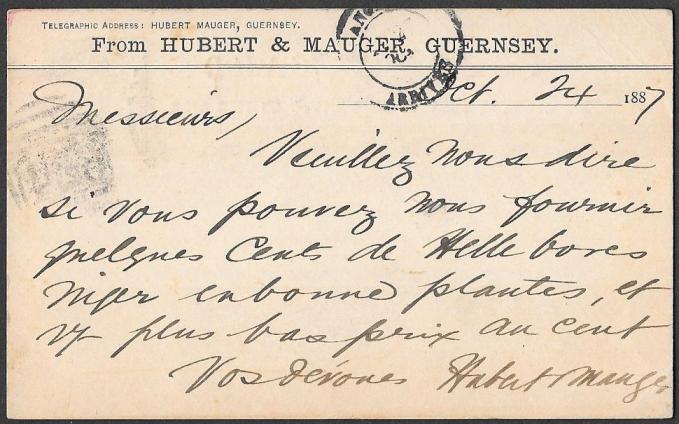 TELEGRAPHIC ADDRESS: HUBERT MAUGER, GUERNSEY.
From HUBERT & MAUGER, GUERNSEY.
ARRIVÉE
Oct. 24 1887
Messieurs,
Veuillez nous dire
si vous pouvez nous fournir
quelques cents de Hellebores
Niger en bonne plantes, et
vr plus bas prix au cent
Vos dévoués Hubert & Mauger